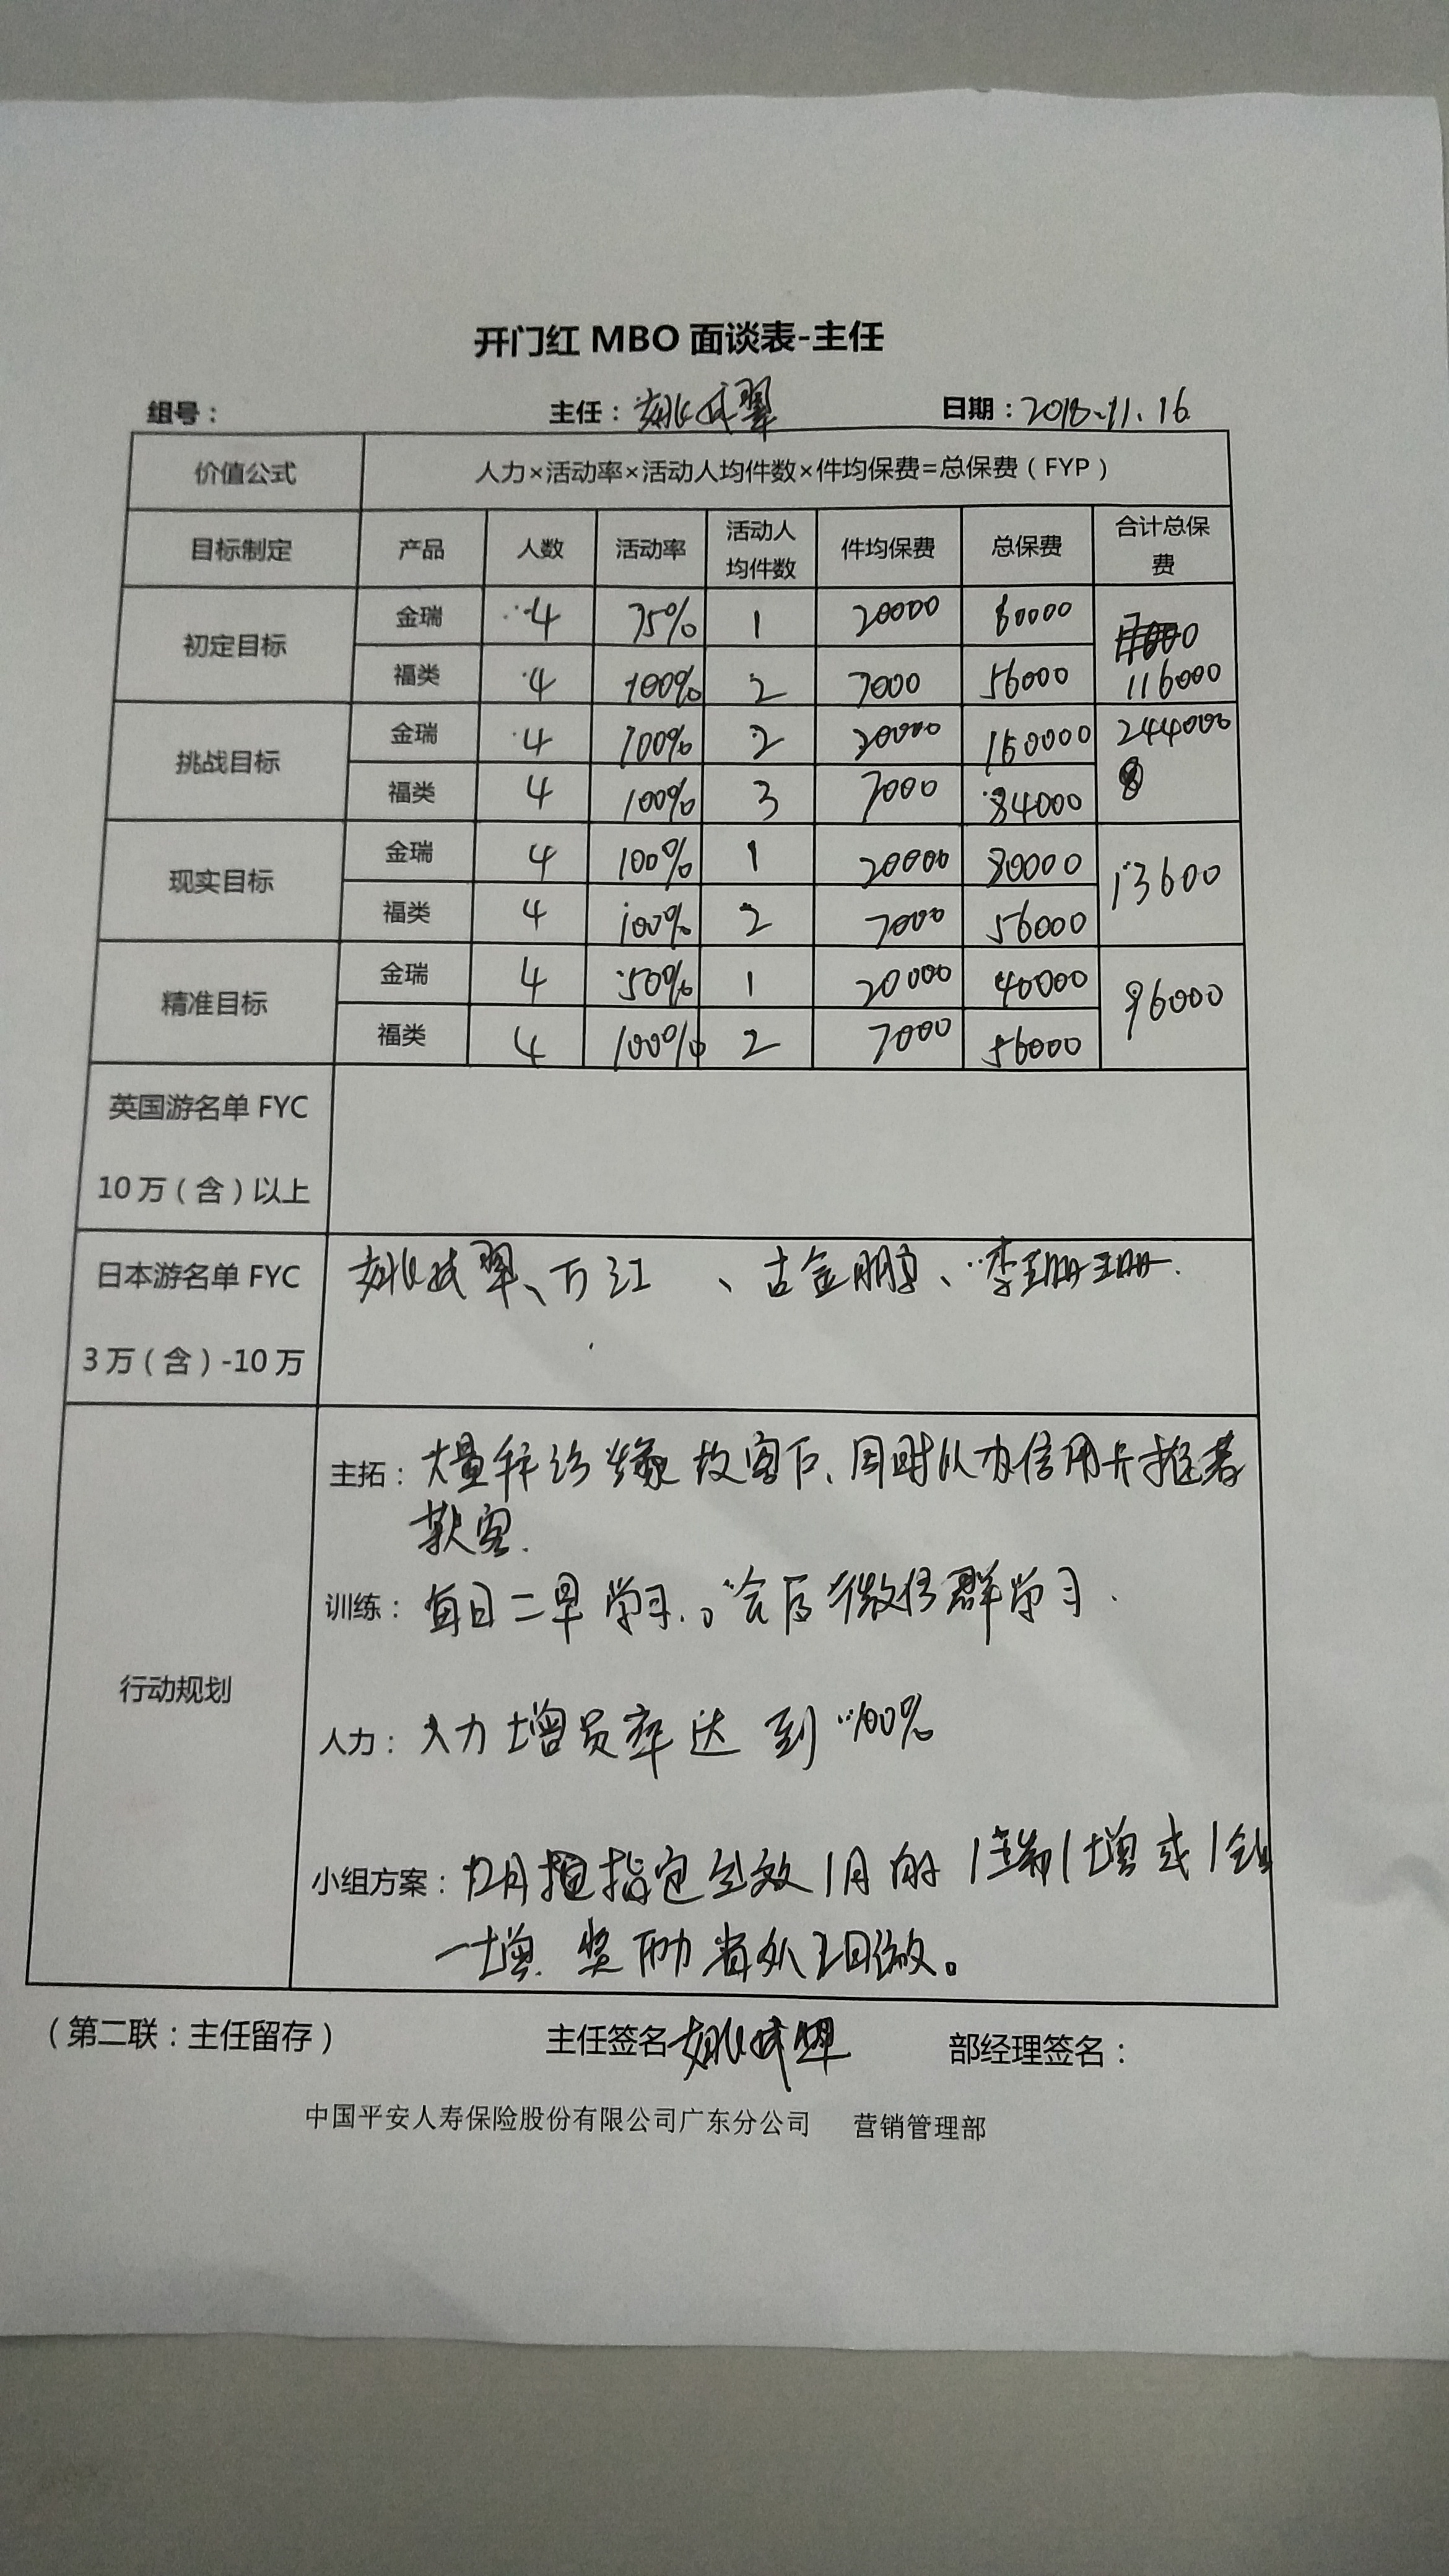 开门红 MBO 面谈表-主任
组号： 主任：姚 翠 日期：2018.11.16
价值公式 人力×活动率×活动人均件数×件均保费=总保费（FYP）
目标制定 产品 人数 活动率 活动人均件数 件均保费 总保费 合计总保费
初定目标 金瑞 4 75% 1 20000 60000
福类 4 100% 2 7000 56000 116000
挑战目标 金瑞 4 100% 2 20000 160000 244000
福类 4 100% 3 7000 84000
现实目标 金瑞 4 100% 1 20000 80000 13600
福类 4 100% 2 7000 56000
精准目标 金瑞 4 50% 1 20000 40000 96000
福类 4 100% 2 7000 56000
英国游名单 FYC
10 万（含）以上
日本游名单 FYC 姚 翠、万江、古金鹏、李珊珊.
3 万（含）-10 万
行动规划
主拓：大量 缘故客户、同时以办信用卡推荐
获客.
训练：每日二早学习.。会后微信群学习.
人力：人力增员率达到100%
小组方案：12月 指定生效1月的1瑞1增或1
一增.奖励
（第二联：主任留存） 主任签名 姚 翠 部经理签名：
中国平安人寿保险股份有限公司广东分公司 营销管理部